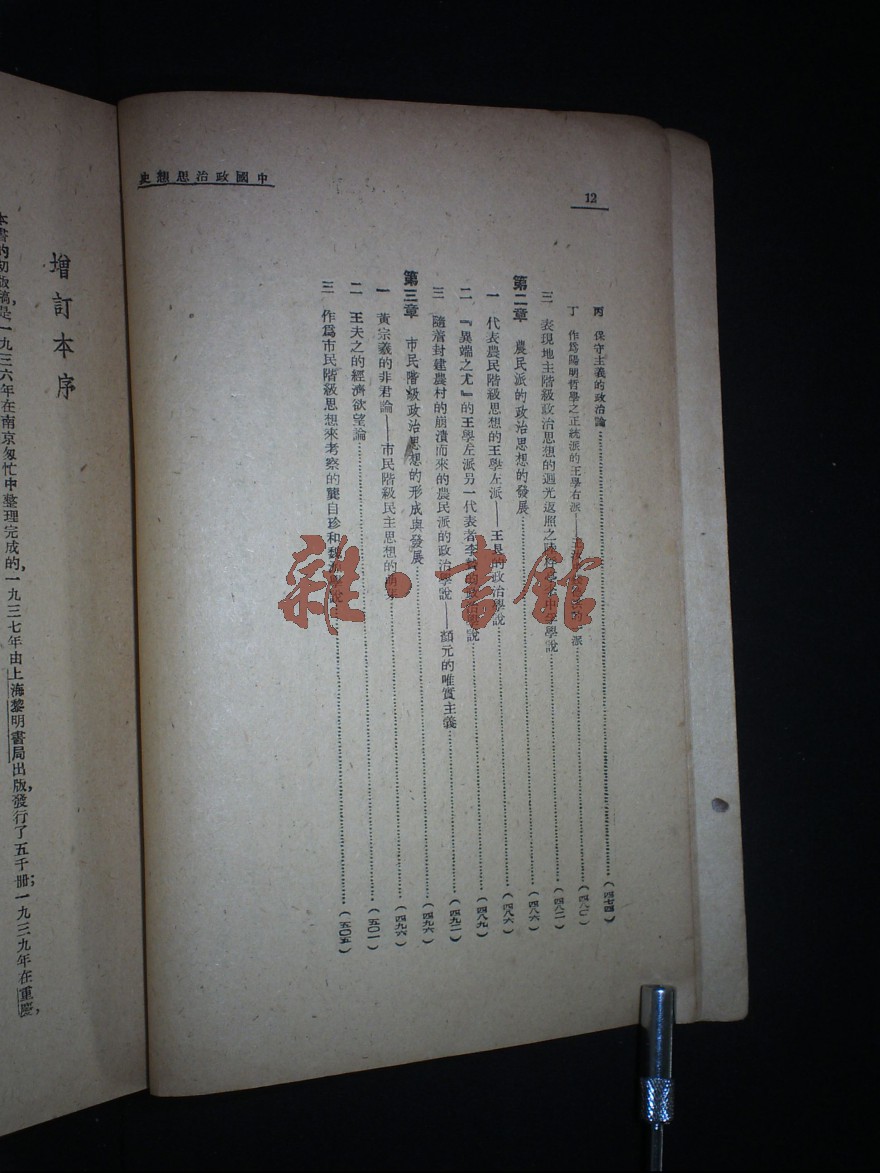 中國政治思想史
12
丙 保守主義的政治論……(四七四)
丁 作爲陽明哲學之正統派的王學右派——
派……(四八〇)
三 表現地主階級政治思想的迴光返照之
學說……(四八二)
第二章 農民派的政治思想的發展……(四八六)
一 代表農民階級思想的王學左派——王艮的政治學說……(四八六)
二 『異端之尤』的王學左派另一代表者李贄的政治學說……(四八九)
三 隨著封建農村的崩潰而來的農民派的政治學說——顏元的唯實主義……(四九二)
第三章 市民階級政治思想的形成與發展……(四九六)
一 黃宗羲的非君論——市民階級民主思想的萌芽……(四九六)
二 王夫之的經濟欲望論……(五〇一)
三 作爲市民階級思想來考察的龔自珍和魏源學說……(五〇五)
增訂本序
本書的初版稿，是一九三六年在南京匆忙中整理完成的，一九三七年由上海黎明書局出版，發行了五千冊；一九三九年在重慶，
雜·書館